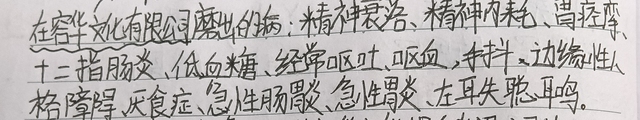 在容华文化有限公司磨出的病：精神衰洛、精神内耗、胃痉挛、
十二指肠炎、低血糖、经常呕吐、呕血、手抖、边缘性人
格障碍、厌食症、急性肠胃炎、急性胃炎、左耳失聪耳鸣。